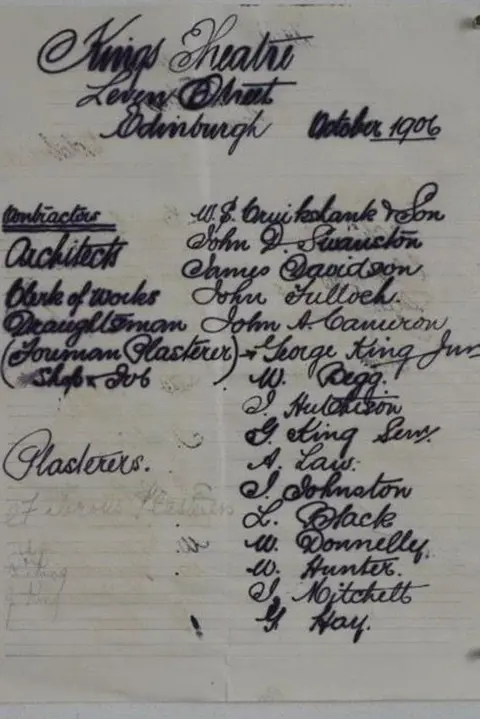 Kings Theatre
Leven Street
Edinburgh October 1906
Contractors W. S. Cruikshank & Son
Architects John D Swanston
James Davidson
Clerk of Works John Tulloch.
Draughtsman John A Cameron
(Foreman Plasterer) George King Junr
Shop & Job W. Begg.
J. Hutchison
G. King Senr
Plasterers. A. Law.
J. Johnston
L. Black
W. Donnelly.
W. Hunter.
J. Mitchell
G. Hay.